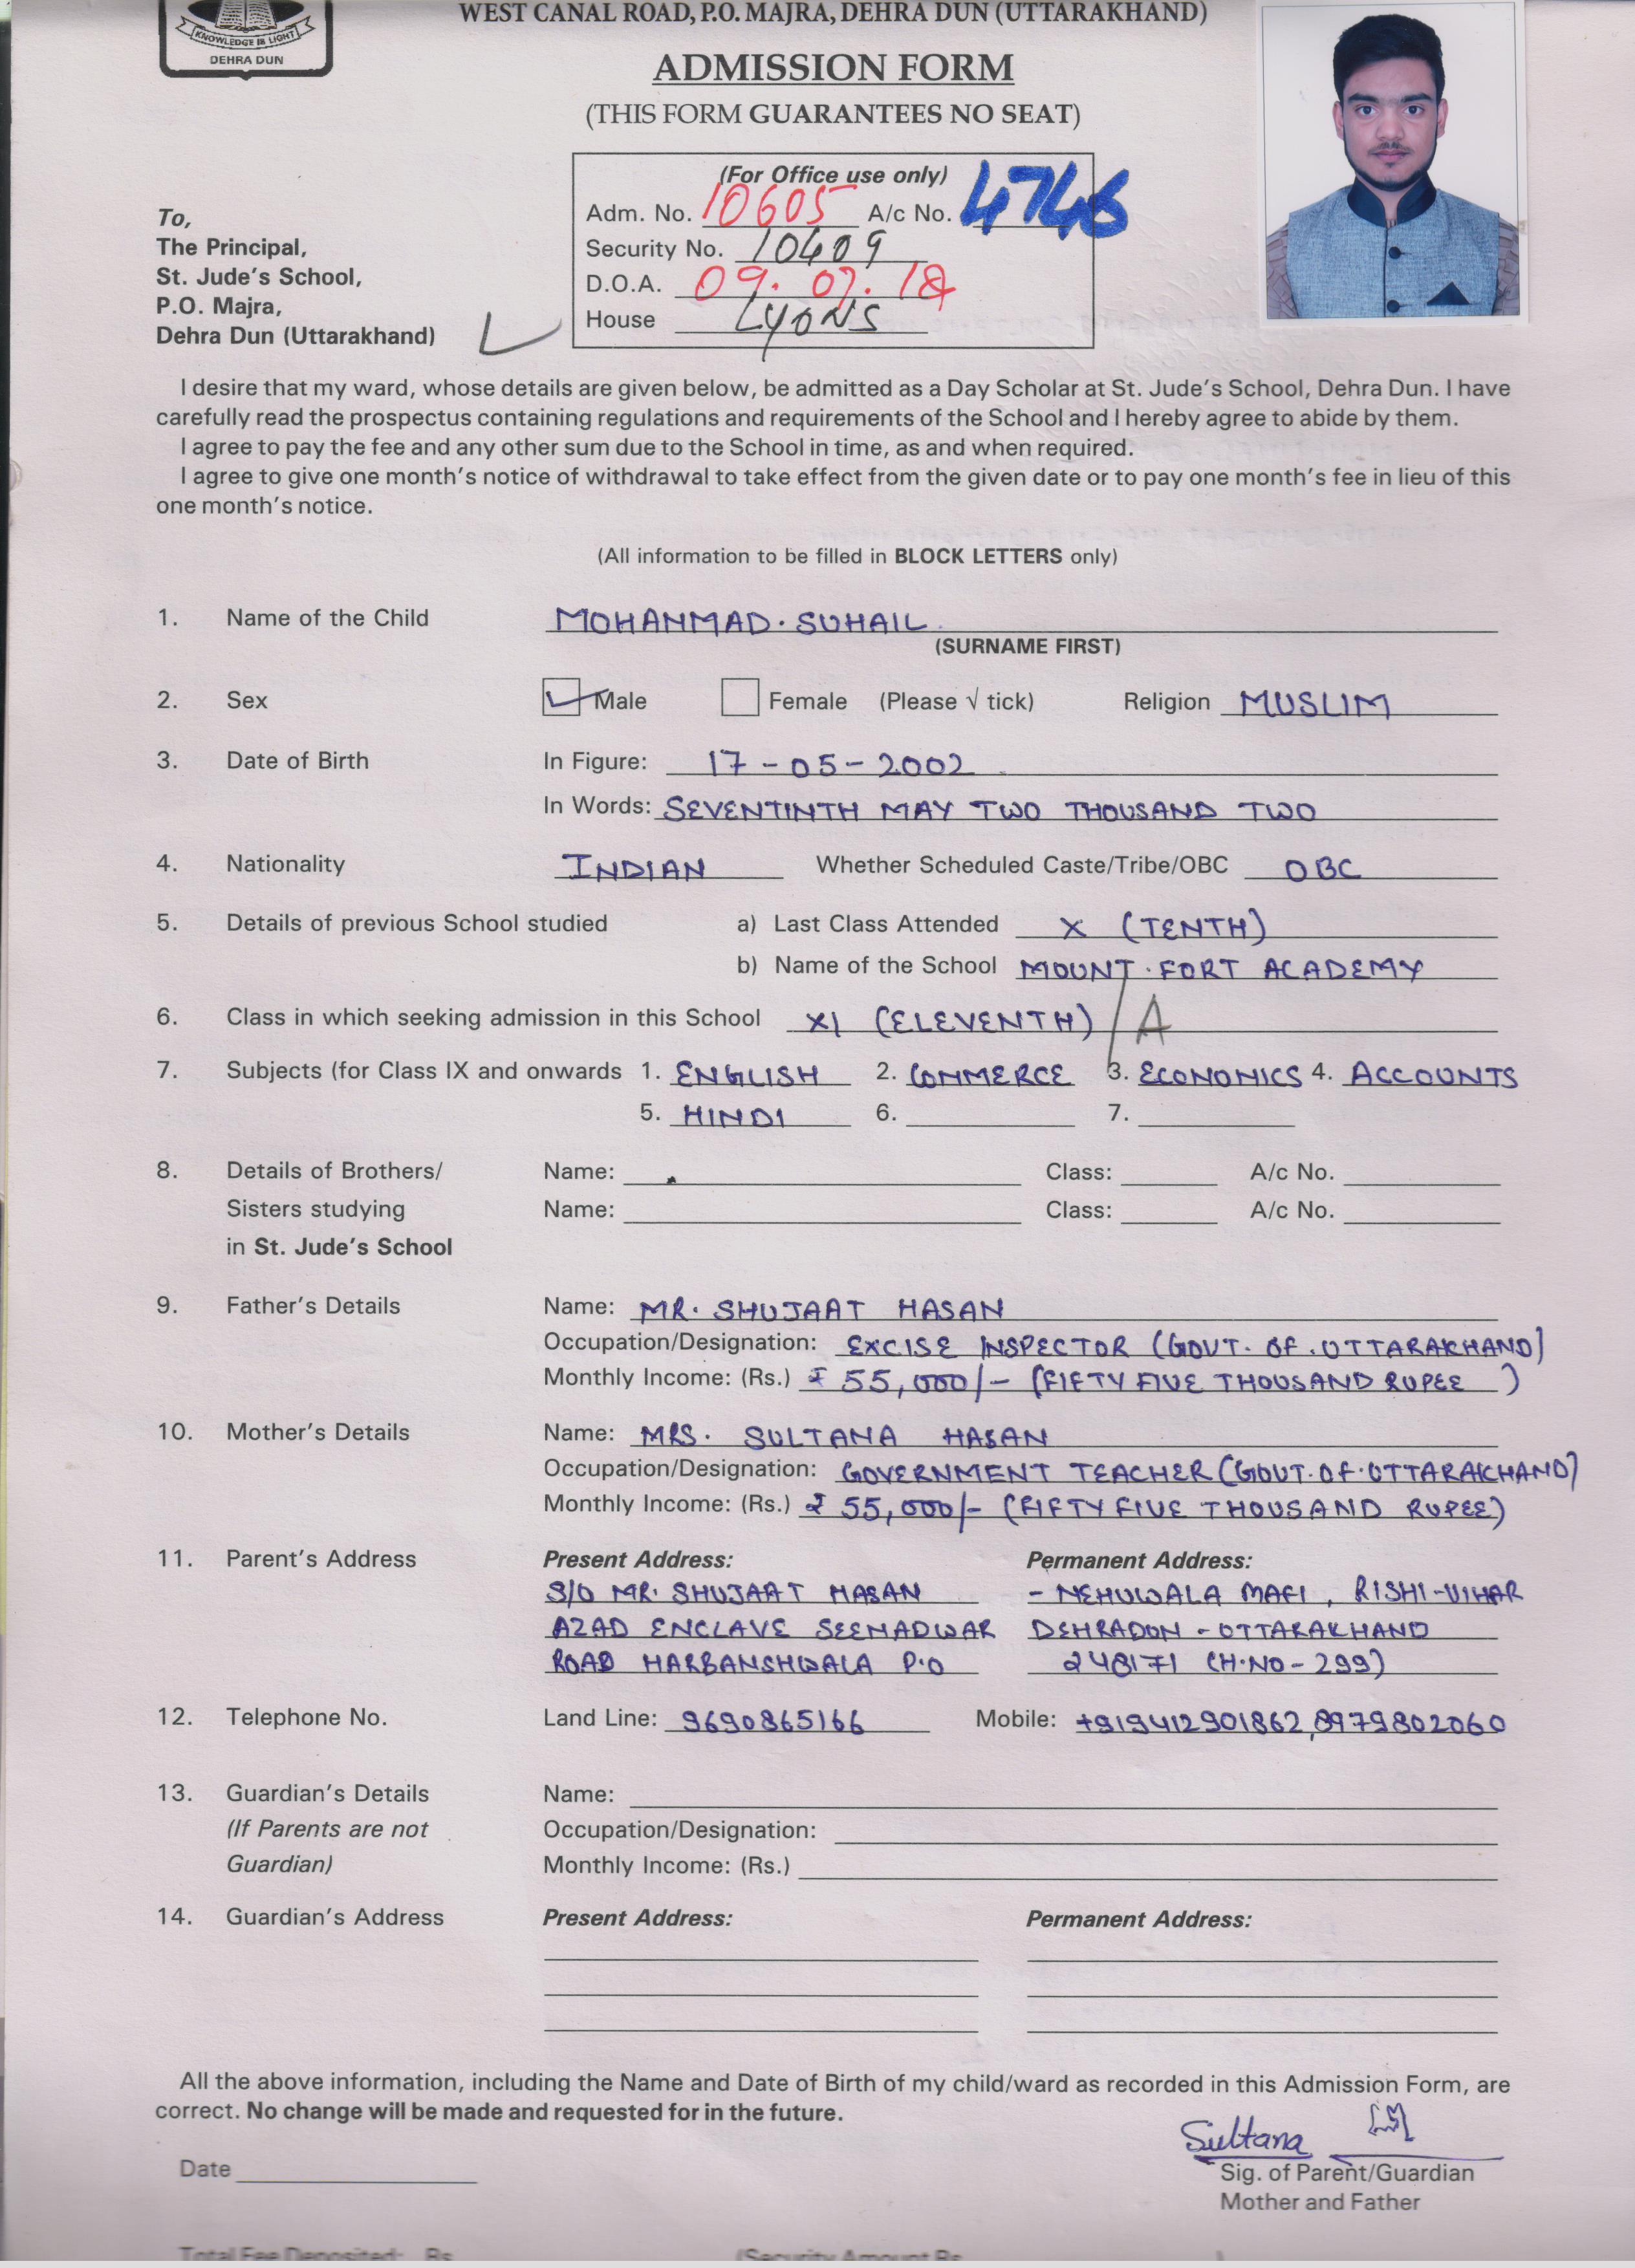 KNOWLEDGE IS LIGHT
DEHRA DUN
WEST CANAL ROAD, P.O. MAJRA, DEHRA DUN (UTTARAKHAND)
ADMISSION FORM
(THIS FORM GUARANTEES NO SEAT)
(For Office use only)
Adm. No. 10605 A/c No. 4746
Security No. 10409
D.O.A. 09. 07. 18
House LYONS
To,
The Principal,
St. Jude's School,
P.O. Majra,
Dehra Dun (Uttarakhand)
I desire that my ward, whose details are given below, be admitted as a Day Scholar at St. Jude's School, Dehra Dun. I have
carefully read the prospectus containing regulations and requirements of the School and I hereby agree to abide by them.
I agree to pay the fee and any other sum due to the School in time, as and when required.
I agree to give one month's notice of withdrawal to take effect from the given date or to pay one month's fee in lieu of this
one month's notice.
(All information to be filled in BLOCK LETTERS only)
1. Name of the Child MOHANMAD. SUHAIL
(SURNAME FIRST)
2. Sex Male Female (Please √ tick) Religion MUSLIM
3. Date of Birth In Figure: 17-05-2002
In Words: SEVENTINTH MAY TWO THOUSAND TWO
4. Nationality INDIAN Whether Scheduled Caste/Tribe/OBC OBC
5. Details of previous School studied a) Last Class Attended X (TENTH)
b) Name of the School MOUNT. FORT ACADEMY
6. Class in which seeking admission in this School XI (ELEVENTH) / A
7. Subjects (for Class IX and onwards 1. ENGLISH 2. COMMERCE 3. ECONONICS 4. ACCOUNTS
5. HINDI 6. 7.
8. Details of Brothers/ Name: Class: A/c No.
Sisters studying Name: Class: A/c No.
in St. Jude's School
9. Father's Details Name: MR. SHUJAAT HASAN
Occupation/Designation: EXCISE INSPECTOR (GOVT. OF. UTTARAKHAND)
Monthly Income: (Rs.) ₹ 55,000/- (FIFTY FIVE THOUSAND RUPEE )
10. Mother's Details Name: MRS. SULTANA HASAN
Occupation/Designation: GOVERNMENT TEACHER (GOVT. OF. UTTARAKHAND)
Monthly Income: (Rs.) ₹ 55,000/- (FIFTY FIVE THOUSAND RUPEE)
11. Parent's Address Present Address: Permanent Address:
S/O MR. SHUJAAT HASAN - NEHUWALA MAFI, RISHI-VIHAR
AZAD ENCLAVE SEEMADWAR DEHRADUN - UTTARAKHAND
ROAD HARBANSHWALA P.O 248171 (H.NO-299)
12. Telephone No. Land Line: 9690865166 Mobile: +919412901862,8979802060
13. Guardian's Details Name:
(If Parents are not Occupation/Designation:
Guardian) Monthly Income: (Rs.)
14. Guardian's Address Present Address: Permanent Address:
All the above information, including the Name and Date of Birth of my child/ward as recorded in this Admission Form, are
correct. No change will be made and requested for in the future.
Sultana
Date Sig. of Parent/Guardian
Mother and Father
Total Fee Deposited: Rs. (Security Amount Rs.